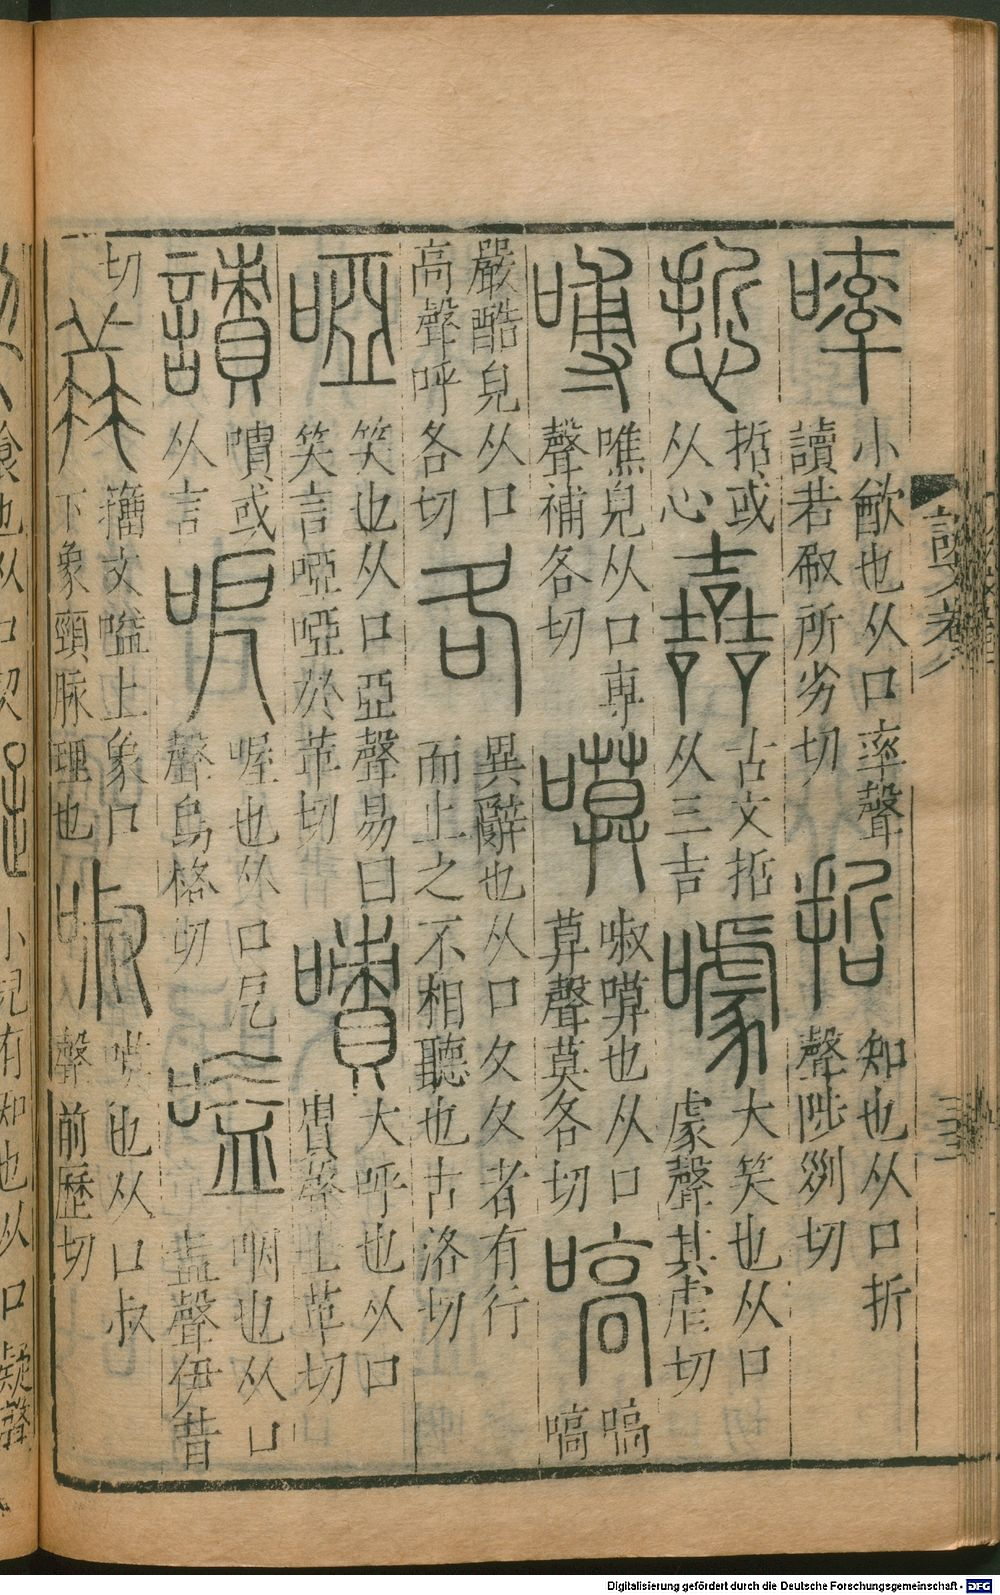 㗚小㱃也从口率聲
讀若㕞所劣切
哲知也从口折
聲陟列切
悊哲或
从心
嚞古文哲
从三吉
噱大笑也从口
豦聲其虐切
嚩噍皃从口尃
聲補各切
嗼㖡嗼也从口
莫聲莫各切
嗃嗃
嗃
嚴酷皃从口
高聲呼各切
各異辭也从口夂夂者有行
而止之不相聽也古洛切
啞笑也从口亞聲易曰
笑言啞啞於革切
嘖大呼也从口
責聲士革切
讀嘖或
从言
呝喔也从口戹
聲烏格切
嗌咽也从口
益聲伊昔
切
籀文嗌上象口
下象頸脈理也
嘆也从口叔
聲前歷切
小兒有知也从口疑聲
說文卷
Digitalisierung gefördert durch die Deutsche Forschungsgemeinschaft - DFG